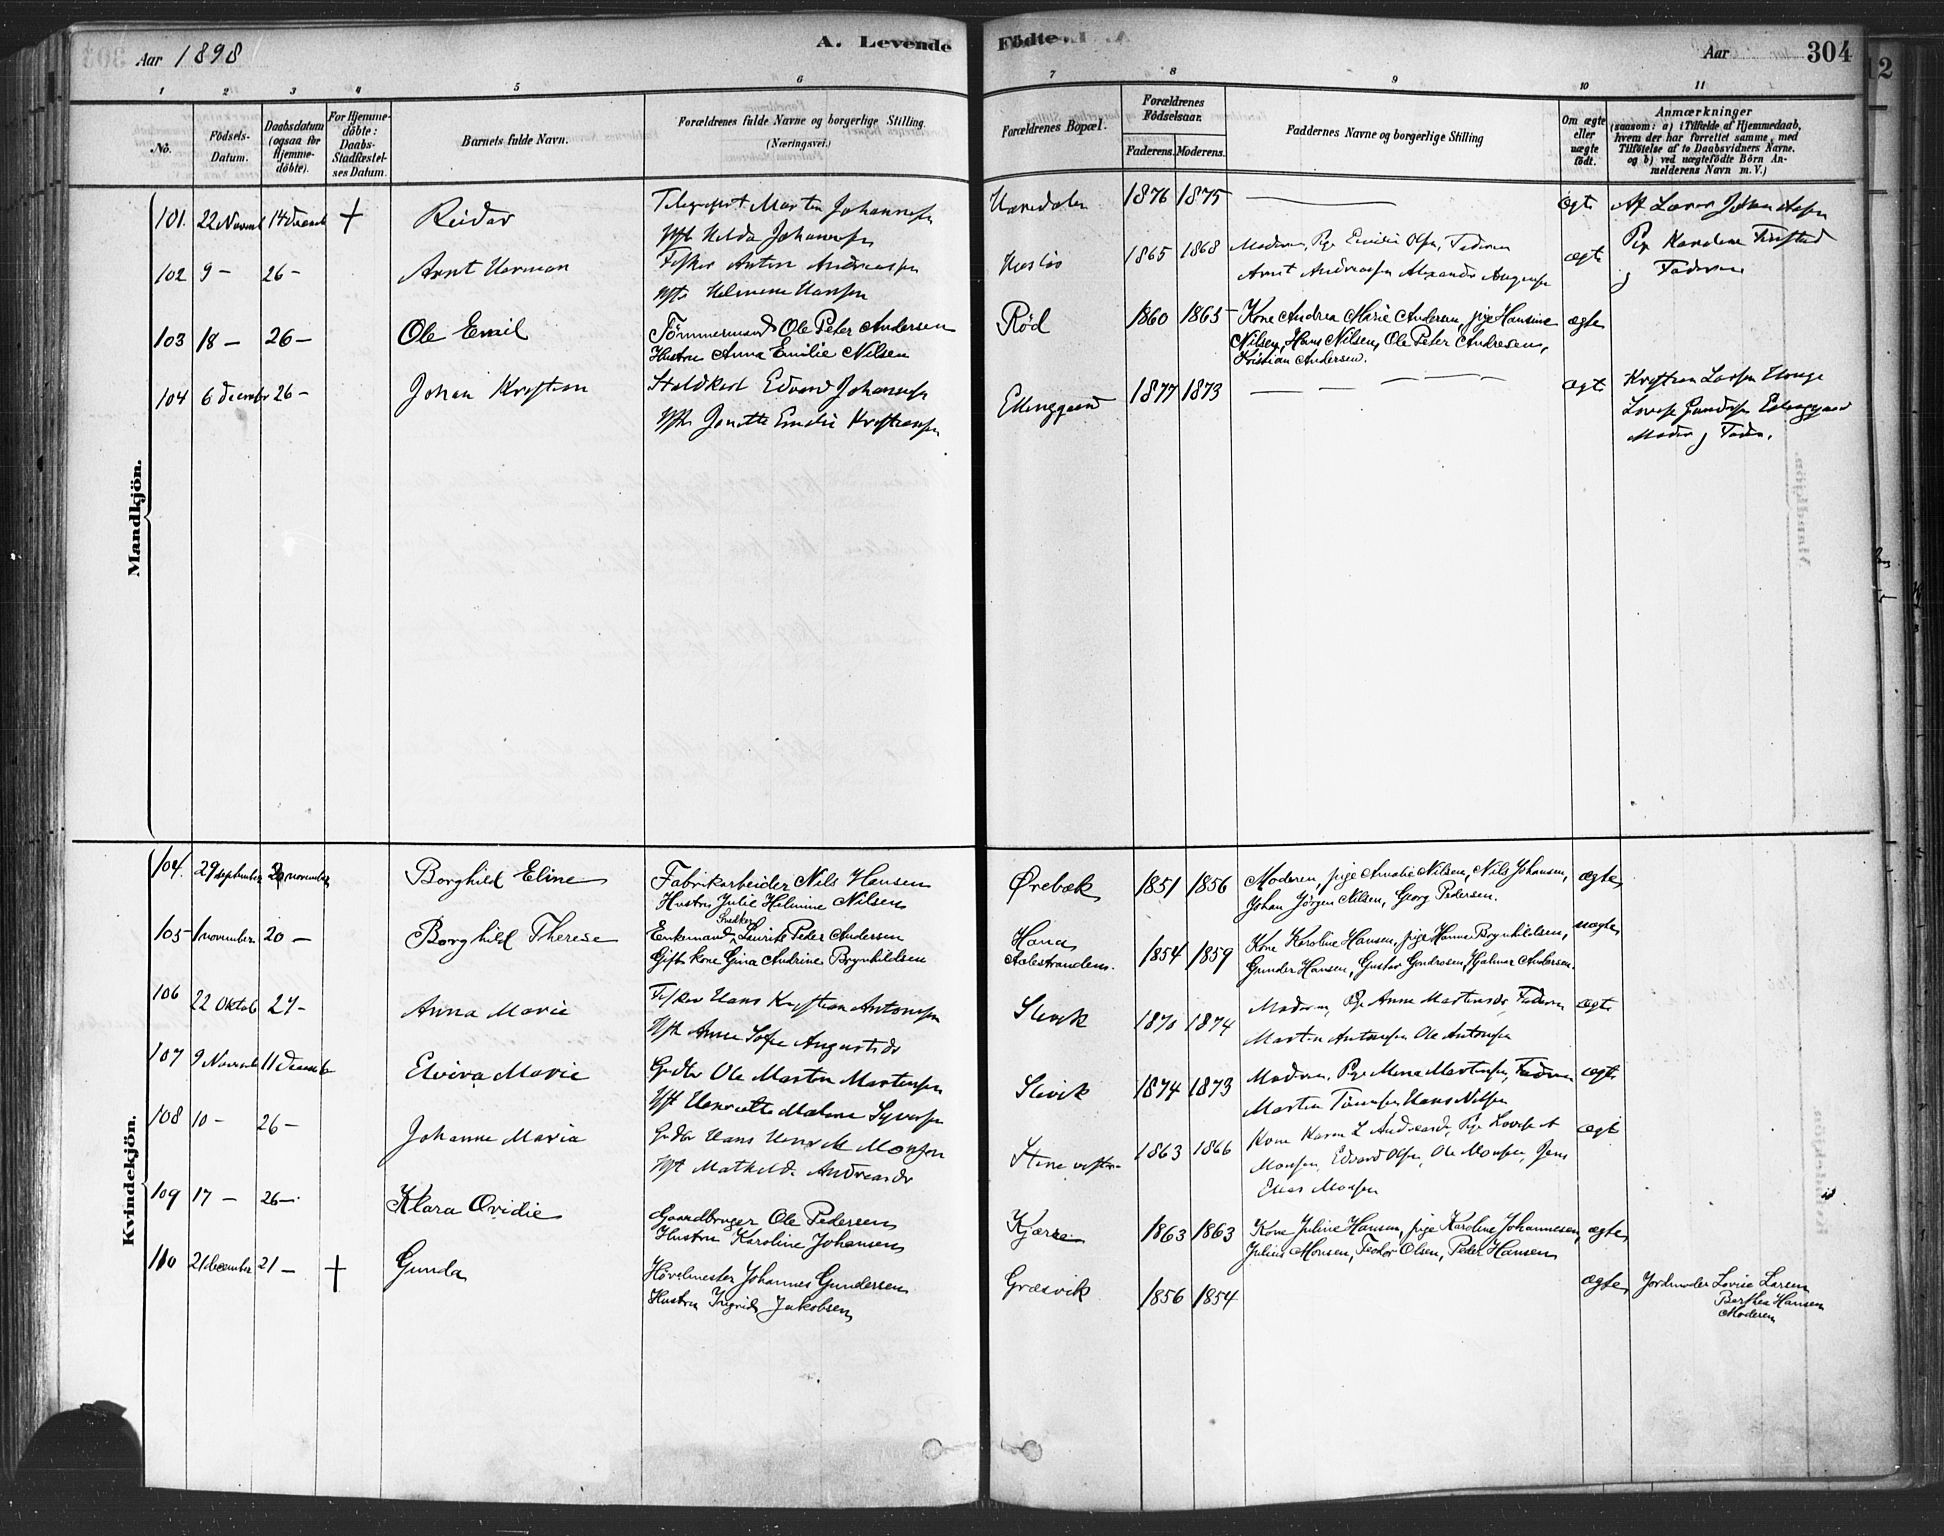 Aar 1898
A. Levende
Födte.
Aar
304
1 2 3 4 5 6 7 8 9 10 11
No.
Födsels-Datum.
Daabsdatum (ogsaa for Hjemme-döbte).
For Hjemme-döbte: Daabs-Stadfæstel-ses Datum.
Barnets fulde Navn.
Forældrenes fulde Navne og borgerlige Stilling. (Næringsvei.)
Forældrenes Bopæl.
Forældrenes Födselsaar.
Faderens. Moderens.
Faddernes Navne og borgerlige Stilling
Om ægte eller uægte født.
Anmærkninger
(saasom: a) i Tilfælde af Hjemmedaab, hvem der har forrettet samme, med Tilföielse af to Daabsvidners Navne. og b) ved uægtefödte Börn An-melderens Navn m. V.)
Mandkjön.
101. 22 Novemb 14 Decemb + Reidar Telegrafist Martin Johannessen 1876 1875 — ægte Af Lærer Johan
Hilda Johannessen Pige Karoline
102 9 — 26 — Arnt Herman Fisker Anton Andreassen 1865 1868 Moderen, Pige Emilie Olsen, Faderen ægte g Faderen
Helmine Hansen Arnt Andreassen
103 18 — 26 — Ole Emil Tömmermand Ole Peter Andersen Röd 1860 1865 Kone Andrea Marie Andersen, pige Hansine ægte
Hustru Anna Emilie Nilsen Nilsen, Hans Nilsen, Ole Peter Andresen,
Kristian Andersen.
104 6 Decembr 26 — Johan Kristian Edvard Johannessen Ellinggaard 1877 1873 — — — — ægte Kristian Larsen Hauge
Jonette Emilie Kristiansen Lovise
Moder g Fader.
Kvindekjön.
104. 29 september 20 november Borghild Eline Fabrikarbeider Nils Hansen Ørebæk 1851 1856 Moderen, pige Amalie Nilsen, Nils Johansen, ægte
Hustru Julie Helmine Nilsen Johan Jörgen Nilsen, Georg Pedersen.
105 1 november 20 — Borghild Therese Enkemand, Snekker Laurits Peder Andersen Hana 1854 1859 Kone Karoline Hansen, pige Hanna Brynhildsen, uægte
Gift kone Gina Andrine Brynhildsen Aalestranden. Gunder Hansen, Gustav Gundrosen, Hjalmar Andersen.
106 22 Oktob 27 — Anna Marie Fisker Hans Kristian Antonsen Slevik 1870 1874 Moderen, Pige Anne Martinsdr Faderen ægte
Anne Sofie Augustsdr Martin Antonsen Ole Antonsen
107 9 Novemb 11 Decemb Elvira Marie Ole Martin Martinsen Slevik 1874 1873 Moderen, Pige Mina Martinsen, Faderen ægte
Henriette Malene Syversen Martin Hans Nilsen
108 10 — 26 — Johanne Maria Hans Henrik Monsen 1863 1866 Kone Karen L Pige Lovise ægte
Mathilde Andreasdr Monsen, Edvard Olsen, Ole Monsen, Jens
Elias Monsen
109 17 — 26 — Klara Ovidie Gaardbruger Ole Pedersen Kjærre 1863 1863 Kone Juline Hansen, pige Karoline Johannesen, ægte
Hustru Karoline Johansen Julius Monsen, Teodor Olsen, Peder Hansen
110 21 december 21 — + Gunda Hövelmester Johannes Gundersen Græsvik 1856 1854 ægte Jordmoder Lovise Larsen
Hustru Ingrid Jakobsen Berthea Hansen
Moderen